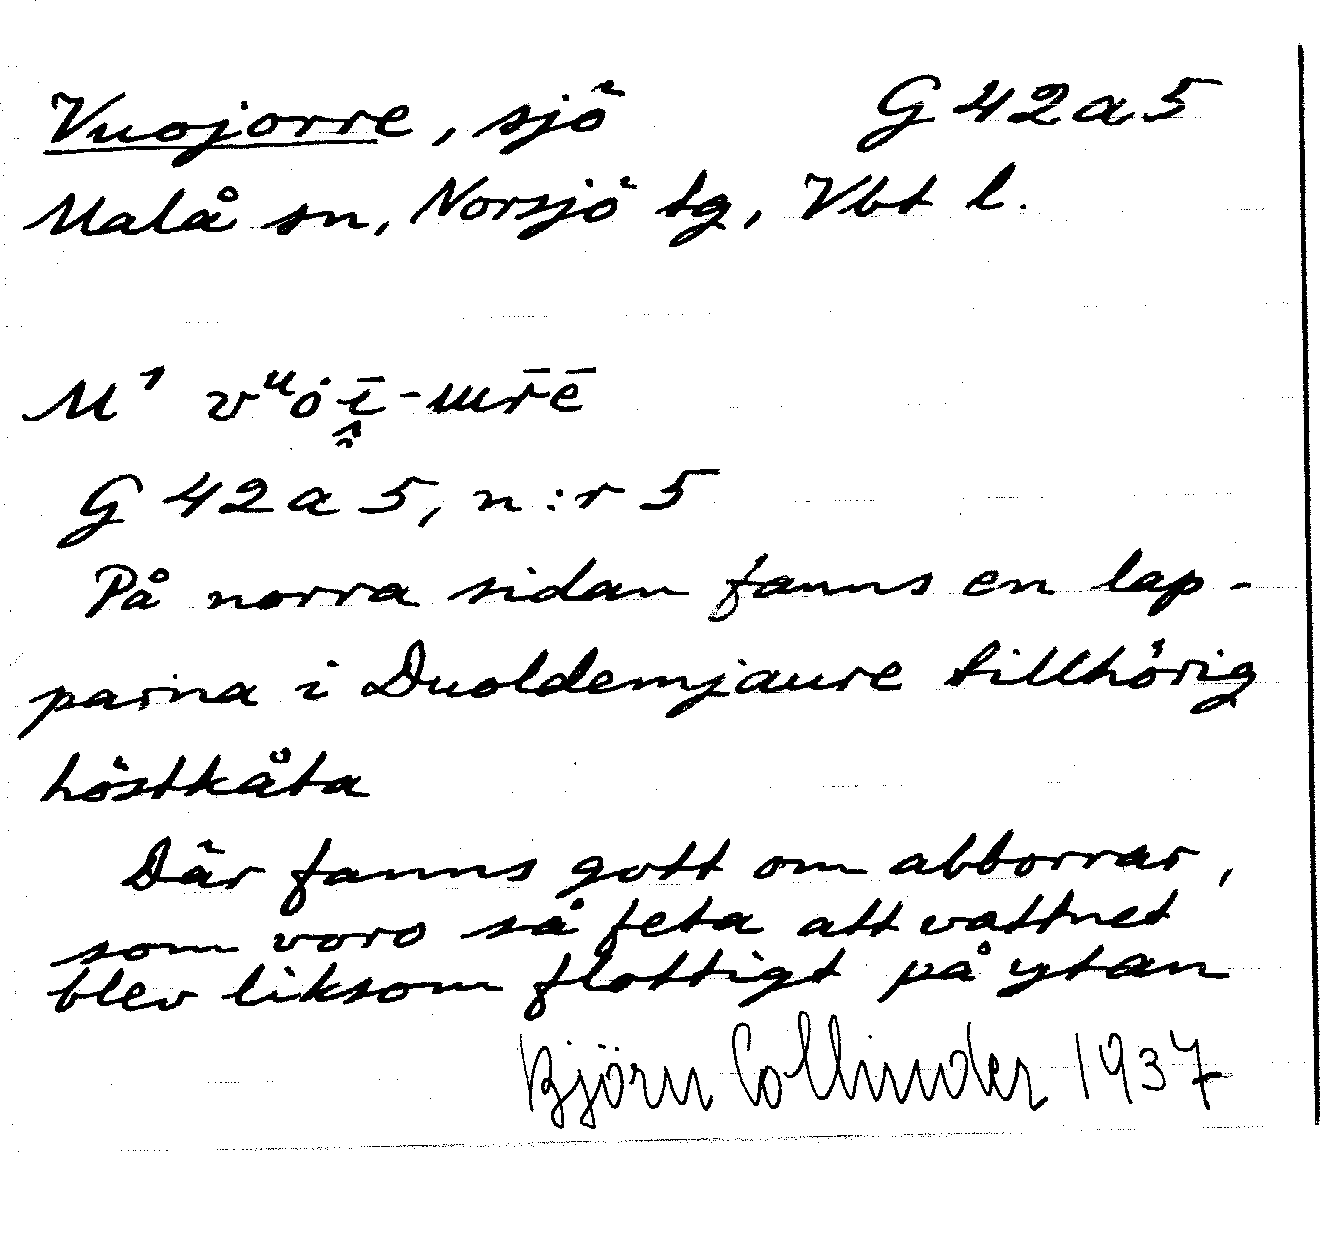 Vuojorre, sjö G 42 a 5
Malå sn, Norsjö tg, Vbt l.
M¹ vᵘȯī̭-ɯr̄ē
G 42 a 5, n:r 5
På norra sidan fanns en lap-
parna i Duoldemjaure tillhörig
höstkåta
Där fanns gott om abborrar,
som voro så feta att vattnet
blev liksom flottigt på ytan
Björn Collinder 1937